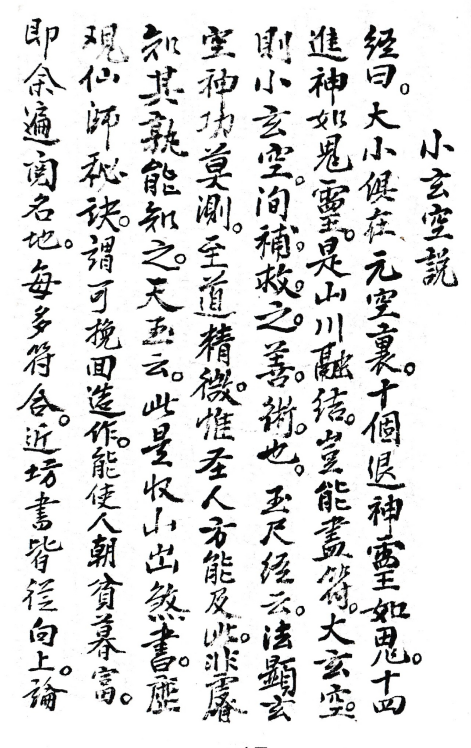 小玄空説
經曰。大小俱在元空裏。十個退神靈如鬼。十四
進神如鬼靈。是山川融結。豈能盡符。大玄空。
則小玄空。洵補救。之。善。術。也。玉尺經云。法顯玄
空神功莫測。至道精微。惟圣人方能及此。非睿
知其孰能知之。天玉云。此是收山出煞書。歷
观仙師秘訣。謂可挽回造作。能使人朝貧暮富。
即余遍阅名地。每多符合。近坊書皆從向上論